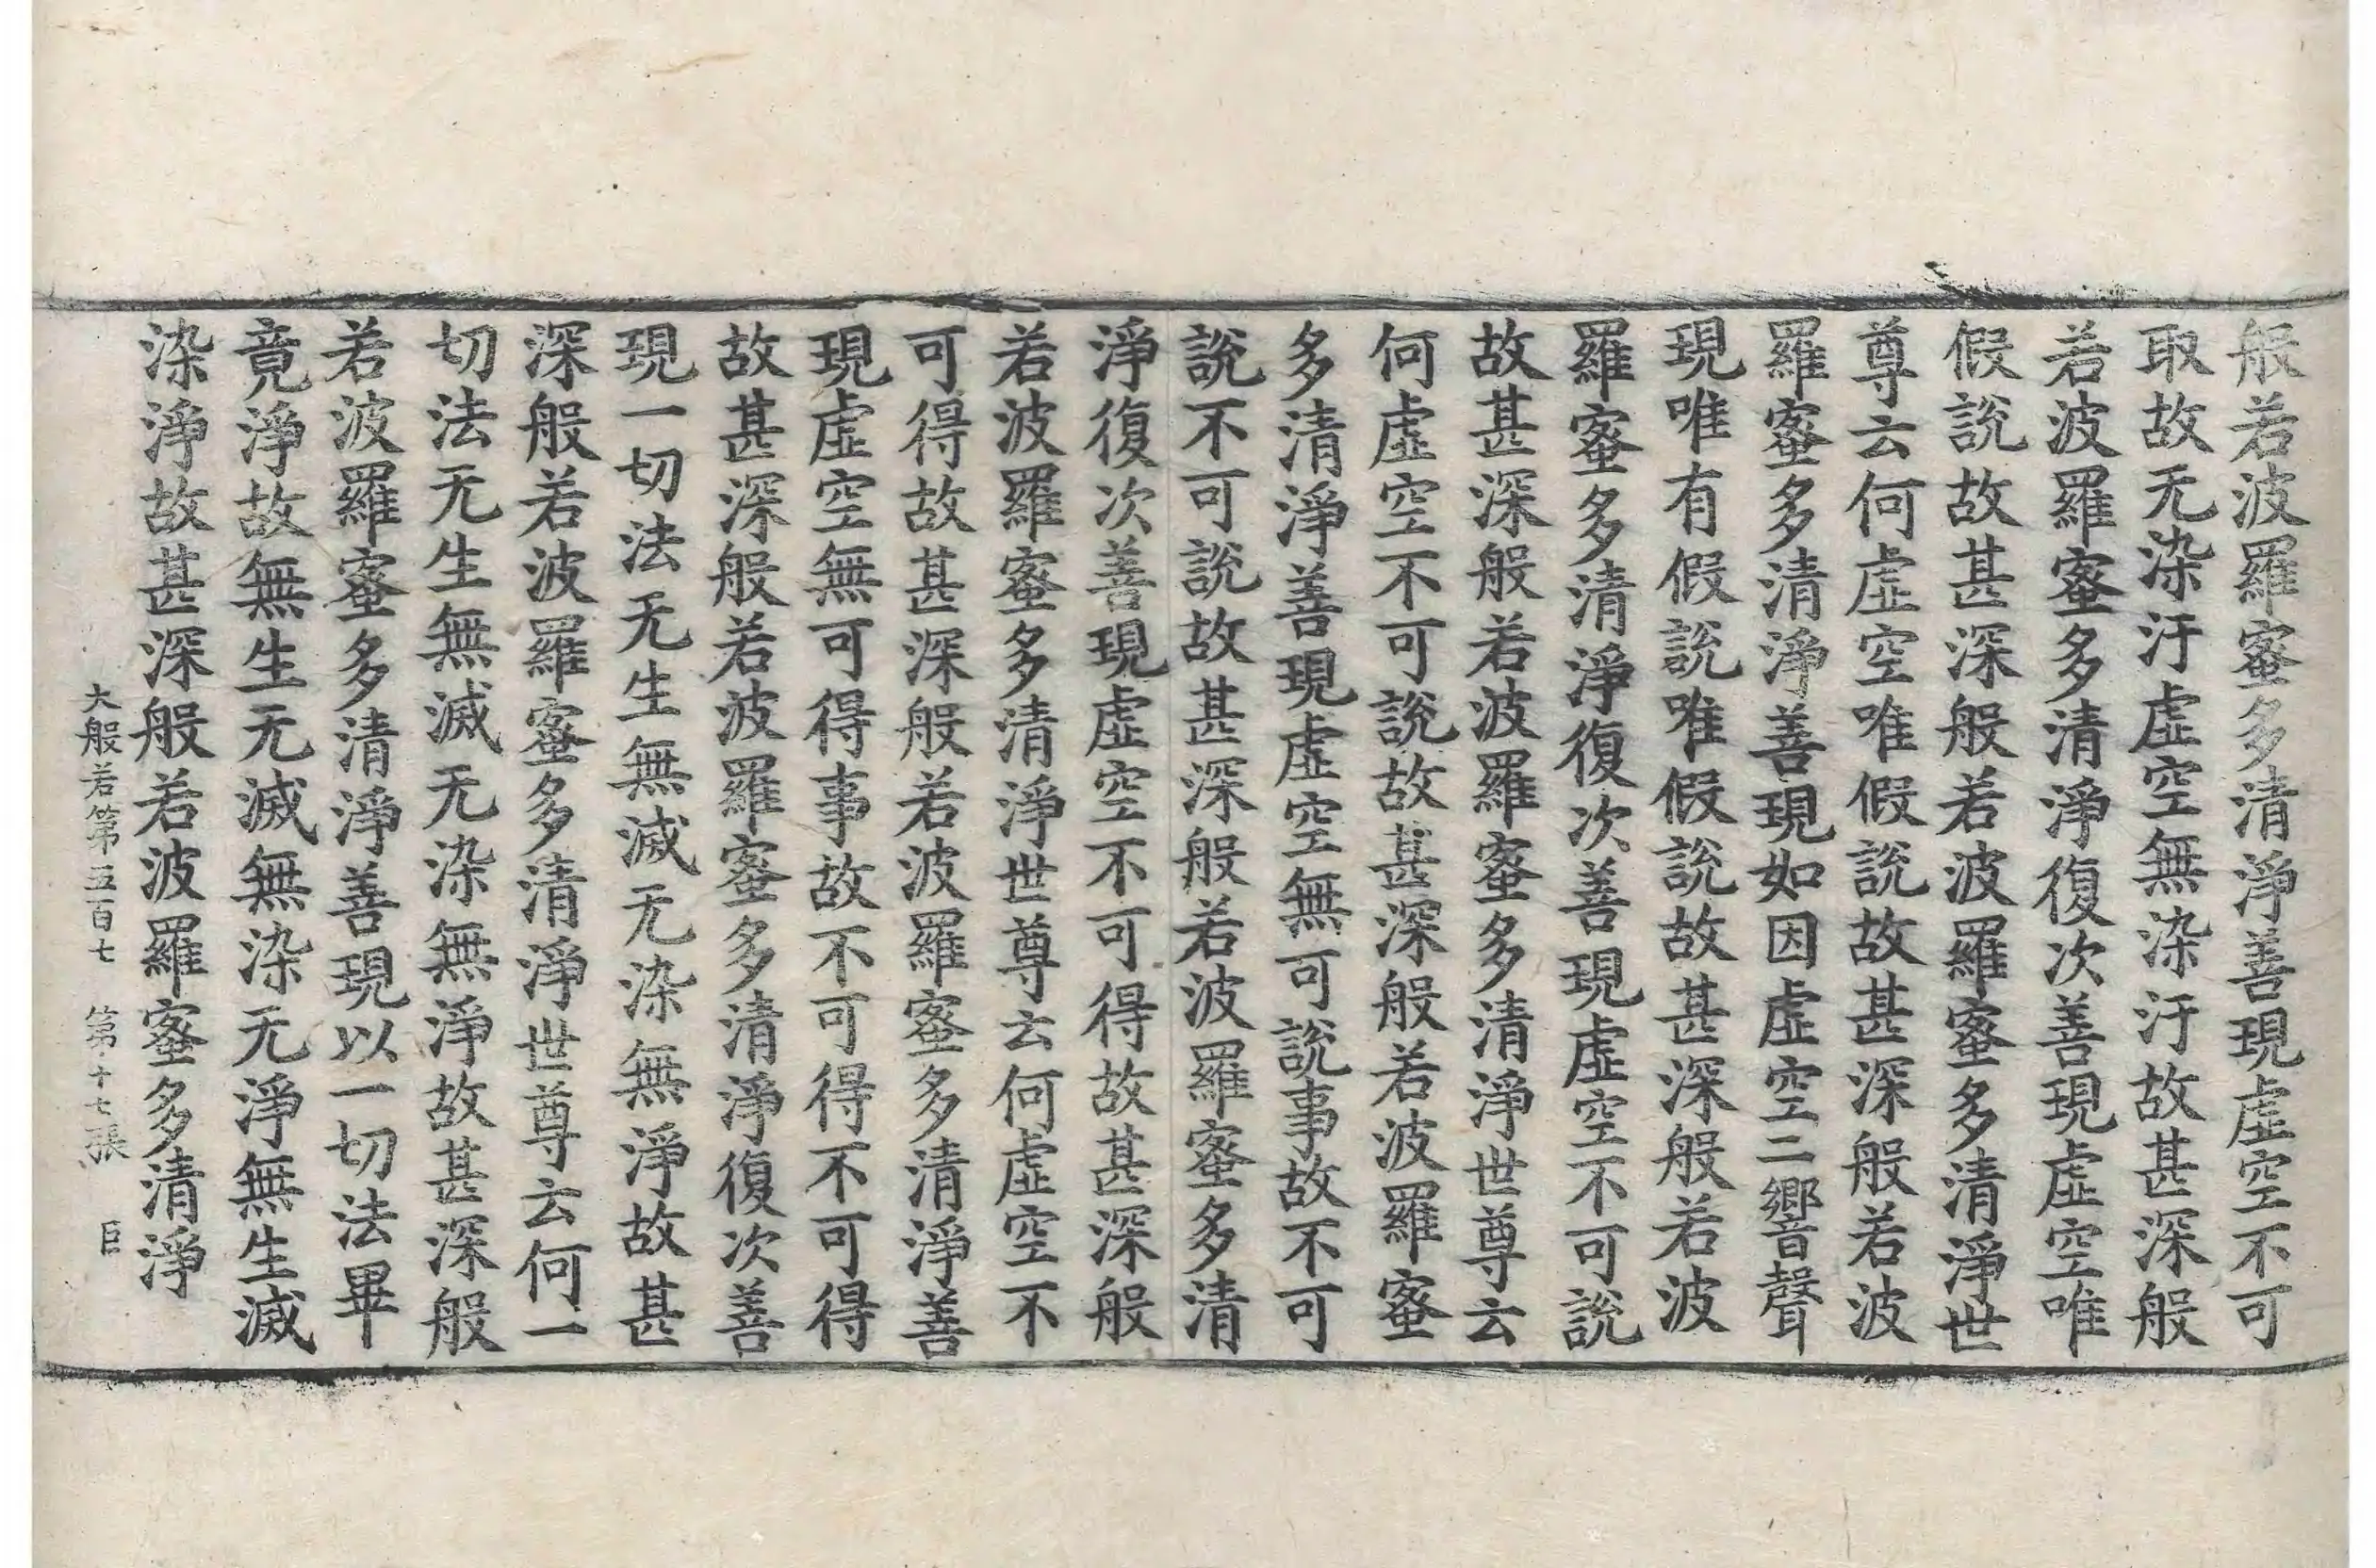 般若波羅蜜多清淨善現虛空不可
取故无染汙虛空無染汙故甚深般
若波羅蜜多清淨復次善現虛空唯
假說故甚深般若波羅蜜多清淨世
尊云何虛空唯假說故甚深般若波
羅蜜多清淨善現如因虛空二響聲
現唯有假說唯假說故甚深般若波
羅蜜多清淨復次善現虛空不可說
故甚深般若波羅蜜多清淨世尊云
何虛空不可說故甚深般若波羅蜜
多清淨善現虛空無可說事故不可
說不可說故甚深般若波羅蜜多清
淨復次善現虛空不可得故甚深般
若波羅蜜多清淨世尊云何虛空不
可得故甚深般若波羅蜜多清淨善
現虛空無可得事故不可得不可得
故甚深般若波羅蜜多清淨復次善
現一切法无生無滅无染無淨故甚
深般若波羅蜜多清淨世尊云何一
切法无生無滅无染無淨故甚深般
若波羅蜜多清淨善現以一切法畢
竟淨故無生无滅無染无淨無生滅
染淨故甚深般若波羅蜜多清淨
大般若第五百七 第十七張 臣